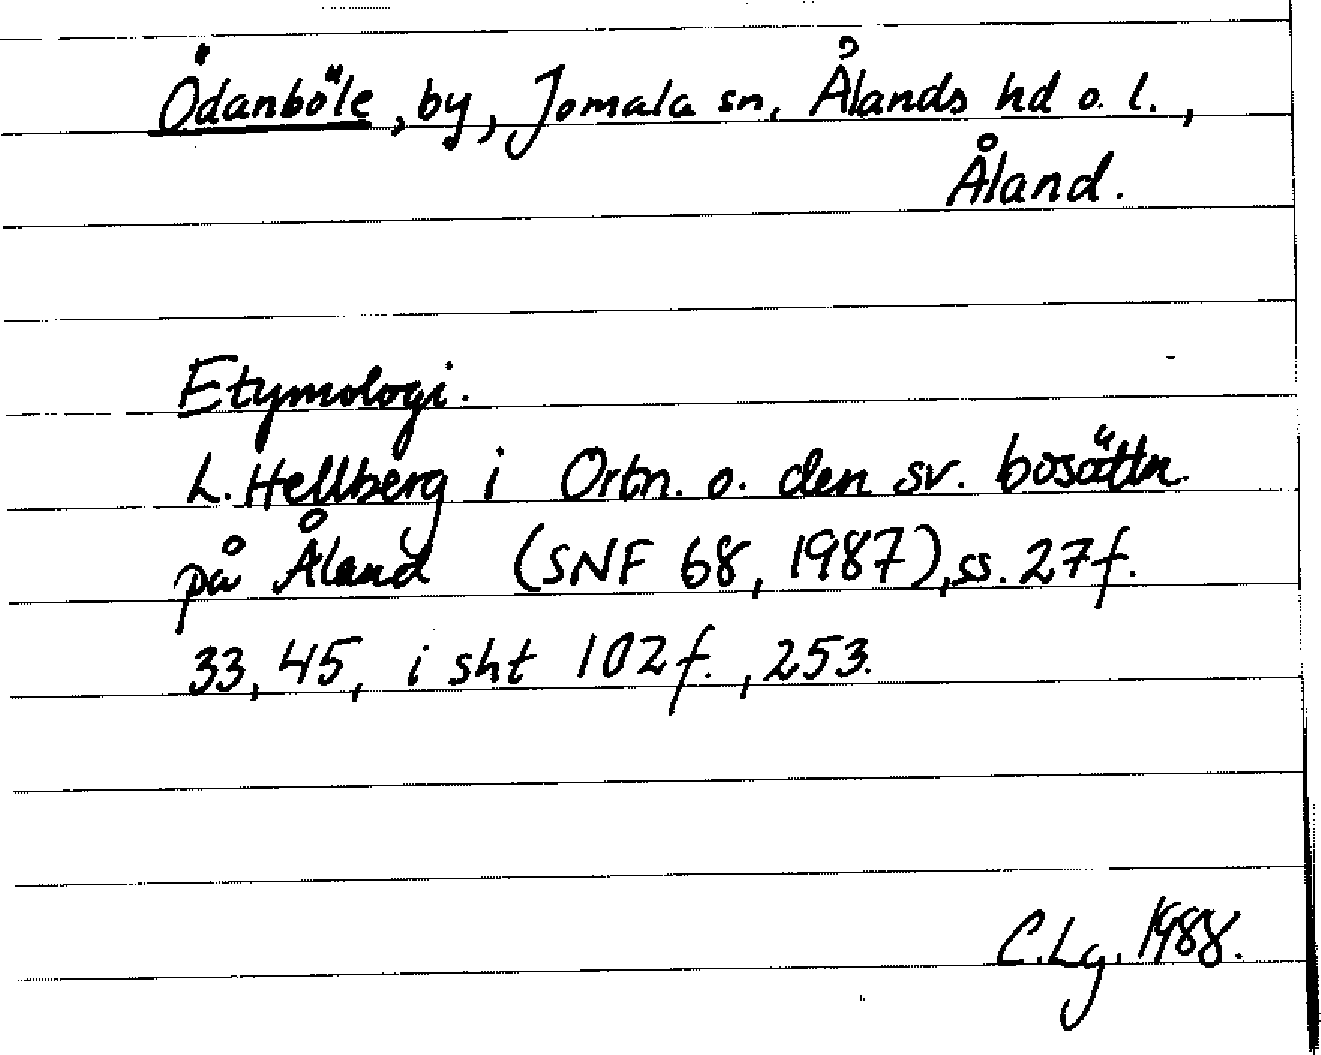 Ödanböle, by, Jomala sn, Ålands hd o. l.,
Åland.
Etymologi.
L. Hellberg i Ortn. o. den sv. bosättn.
på Åland (SNF 68, 1987), ss. 27f.
33, 45, i sht 102f., 253.
C.Lg. 1988.